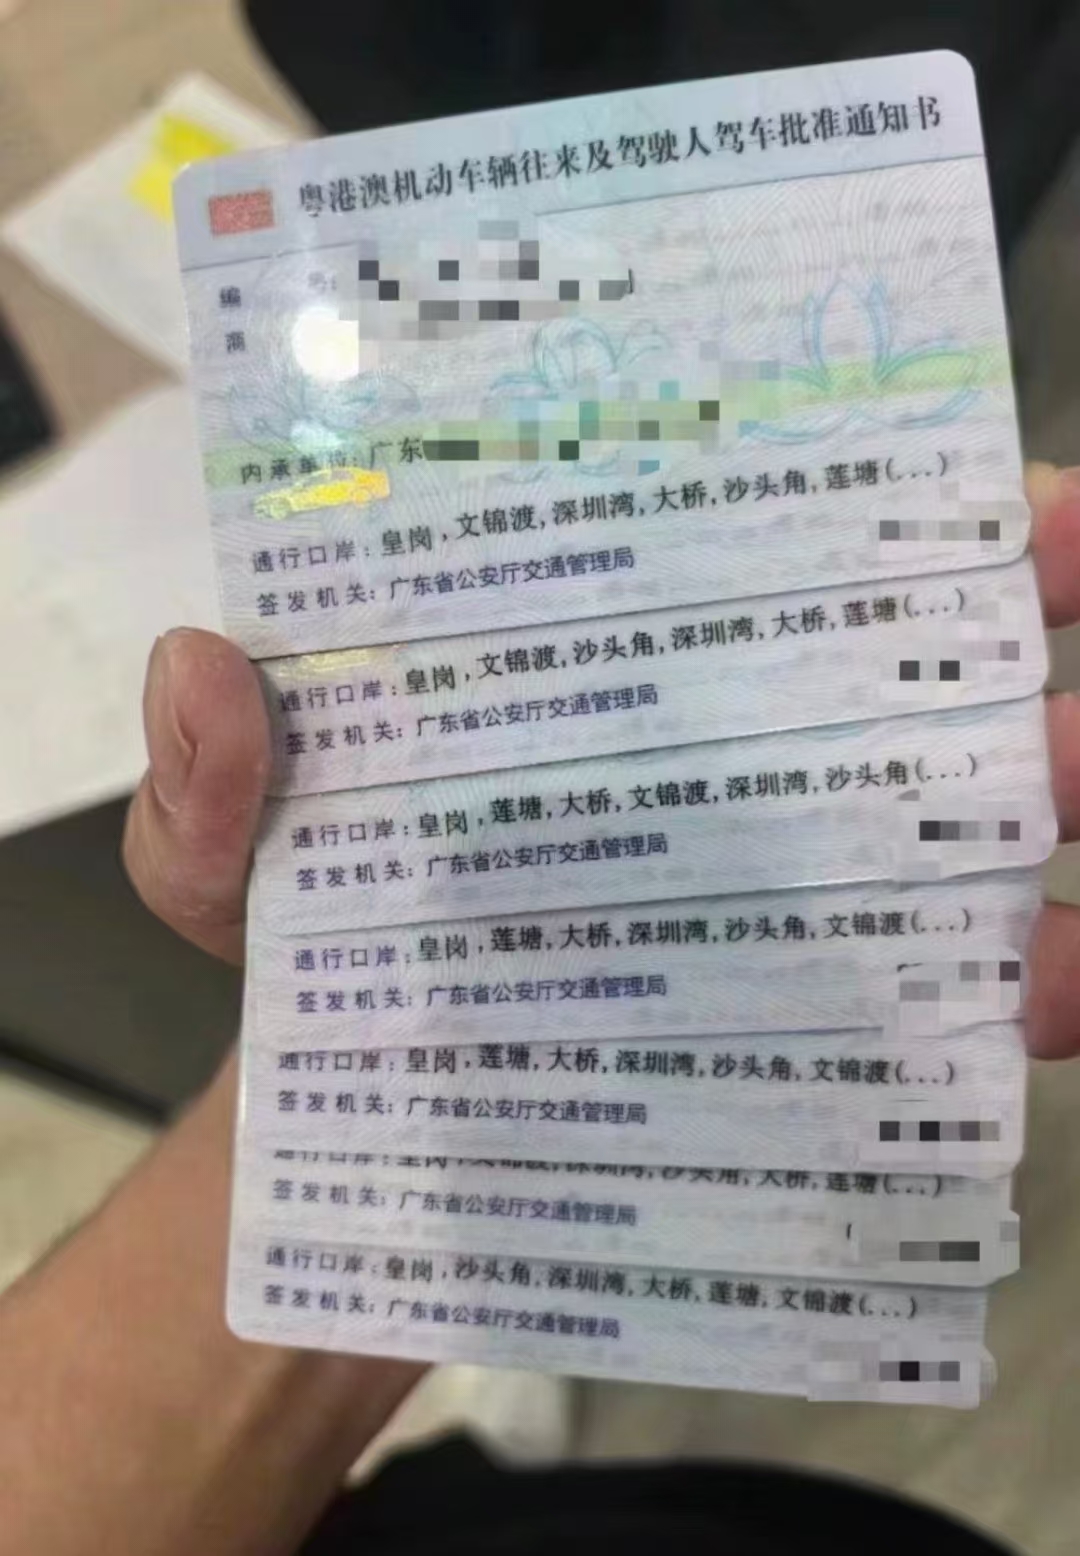 粤港澳机动车辆往来及驾驶人驾车批准通知书
编 号:
商
内承单位:广东
通行口岸:皇岗,文锦渡,深圳湾,大桥,沙头角,莲塘(...)
签发机关:广东省公安厅交通管理局
通行口岸:皇岗,文锦渡,沙头角,深圳湾,大桥,莲塘(...)
签发机关:广东省公安厅交通管理局
通行口岸:皇岗,莲塘,大桥,文锦渡,深圳湾,沙头角(...)
签发机关:广东省公安厅交通管理局
通行口岸:皇岗,莲塘,大桥,深圳湾,沙头角,文锦渡(...)
签发机关:广东省公安厅交通管理局
通行口岸:皇岗,莲塘,大桥,深圳湾,沙头角,文锦渡(...)
签发机关:广东省公安厅交通管理局
通行口岸:皇岗,文锦渡,深圳湾,沙头角,大桥,莲塘(...)
签发机关:广东省公安厅交通管理局
通行口岸:皇岗,沙头角,深圳湾,大桥,莲塘,文锦渡(...)
签发机关:广东省公安厅交通管理局